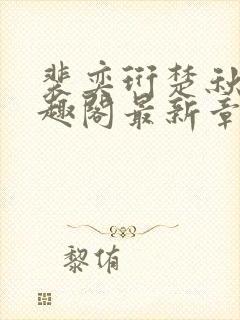 裴奕衍楚秋
趣阁最新章
黎侑